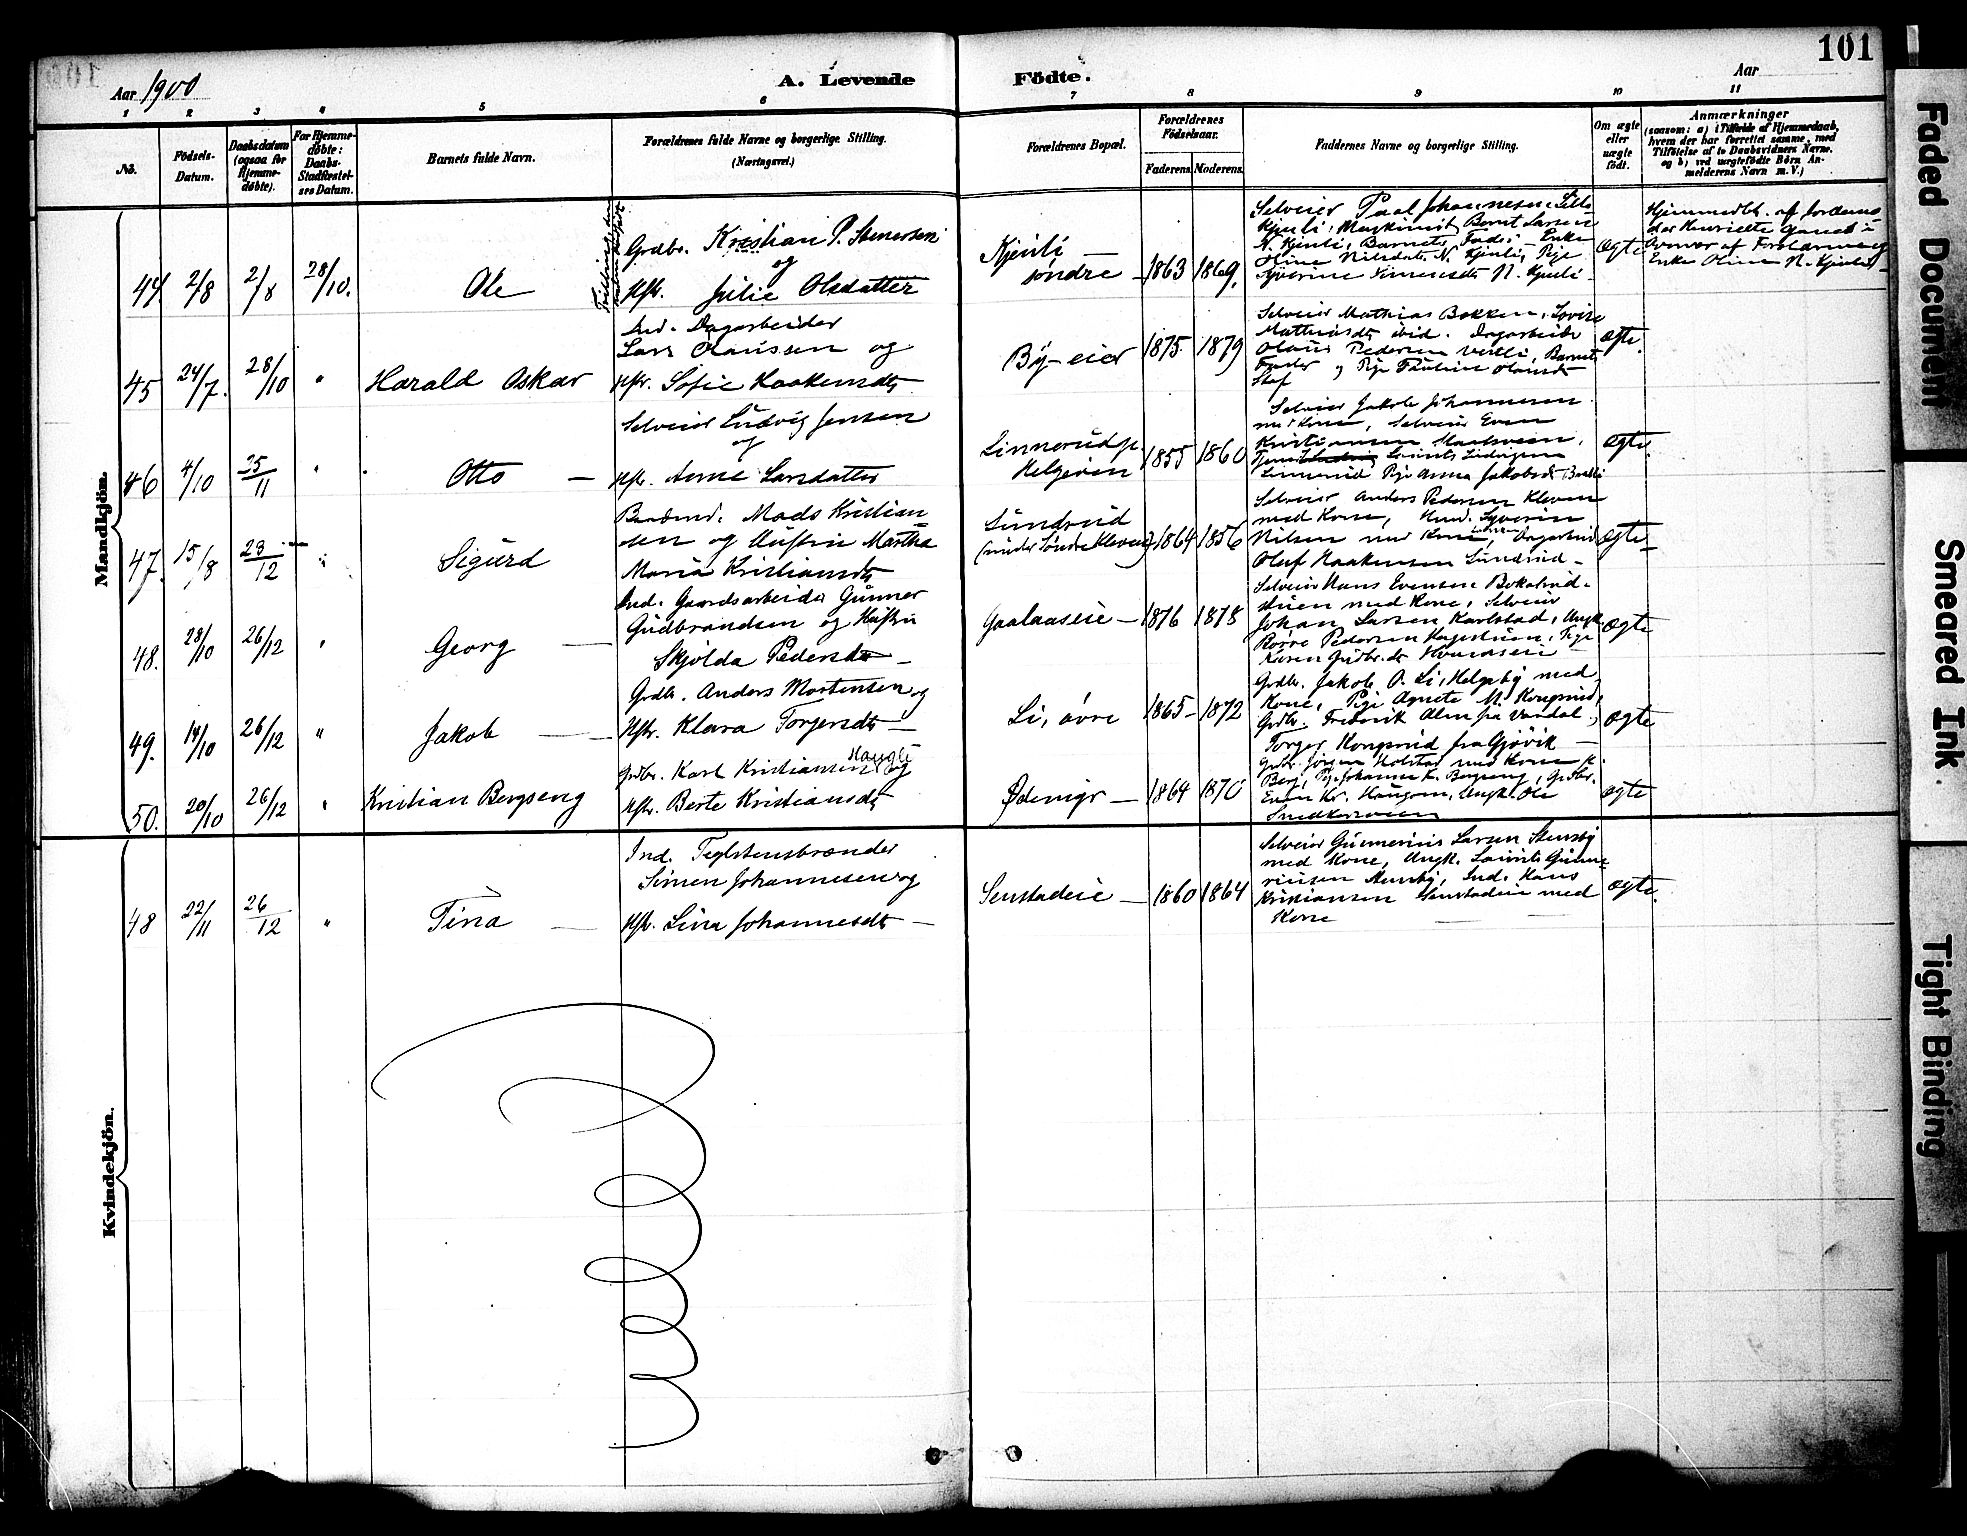 101
Aar 1900
A. Levende Födte.
Aar
1 2 3 4 5 6 7 8 9 10 11
No.
Födsels-Datum.
Daabsdatum (ogsaa for Hjemmedøbte).
For Hjemmedøbte: Daabs-Stadfæstelses Datum.
Barnets fulde Navn.
Forældrenes fulde Navne og borgerlige Stilling.
(Næringsvei.)
Forældrenes Bopæl.
Forældrenes Fødselsaar.
Faderens Moderens
Faddernes Navne og borgerlige Stilling.
Om ægte eller uægte født.
Anmærkninger
(saasom: a) i Tilfælde af Hjemmedaab,
hvem der har forrettet samme, med
Tilföielse af to Daabsvidners Navne.
og b) ved uægtefödte Börn Anmelderens Navn m.V.)
Mandkjön.
44 2/8 2/8 28/10. Ole
Grdbr. Kristian P. Stenersen
og
Hstr. Julie Olsdatter
Kjenli
søndre 1863 1869.
Selveier Paal Johannesen Lille
Kjenli, Maskinist Bernt Larsen
N. Kjenli, Barnets Fader, Enke
Oline Nilsdatr. N. Kjenli, Pige
N. Kjenli
Ægte
Hjemmedbt. af Jordemoder Henriette
Enke Oline N. Kjenli
45 24/7. 28/10 " Harald Oskar
Ind. Dagarbeider
Lars Olaussen og
Hstr. Sofie Haakensdtr
By-eier 1875. 1879
Selveier Mathias Bakken, Lovise
Mathiasdtr ibid. Dagarbeider
Olaus Pedersen Barnets
Fader og Pige Pauline Olausdtr
Ægte.
46 4/10 25/11 " Otto
Selveier Ludvig Jensen
og
Hstr. Anne Larsdatter
Linnerudp.
Helgøien 1855 1860
Selveier Jakob Johannesen
med Kone, Selveier Even
Kristiansen
Laurits Ludvigsen
Linnerud Pige Anna Jakobsdtr
Ægte.
47. 15/8 23/12 " Sigurd
Mads Kristiansen og Hustru Martha
Maria Kristiansdtr
Sundrud
(under Søndre Kleven) 1864 1856
Selveier Anders Pedersen Kleven
med Kone, Syverin
Nilsen med Kone,
Oluf Haakensen Sundrud
Ægte
48. 28/10 26/12 " Georg
Ind. Gaardsarbeider Gunner
Gudbrandsen og Hustru
Skjolda Pedersdtr
Gaalaaseie 1876 1878
Selveier Hans Evensen
med Kone, Selveier
Johan Larsen Karlstad, Ungk.
Pedersen Pige
Karen Gudbr.dtr
Ægte
49. 14/10 26/12 " Jakob
Grdbr. Anders Mortensen og
Hstr. Klara Torgersdtr
Li, øvre 1865 1872
Grdbr. Jakob O. Li, Helgeby med
Kone, Pige Agnete M. Kongsrud,
Grdbr. Frederik Alm fra Vardal,
Torger Kongsrud fra Gjøvik
Ægte
50. 20/10 26/12 " Kristian Bergseng
Grdbr. Karl Kristiansen Haugli og
Hstr. Berte Kristiansdtr
Ødemgr 1864 1870
Grdbr. Jørgen Holstad med Kone
Berg, Pige Johanne K. Bergseng, Grdbr.
Even Kr. Haugom, Ungk. Ole
Ægte
Kvindekjön.
48 22/11 26/12 " Tina
Ind. Teglstensbrænder
Simen Johannesen og
Hstr. Lina Johannesdtr
Senstadeie 1860 1864
Selveier Gunnerius Larsen Stensby
med Kone, Ungk. Laurits Gunneriusen Stensby, Ind. Hans
Kristiansen Senstadeie med
Kone
Ægte.
Faded Document
Smeared Ink
Tight Binding